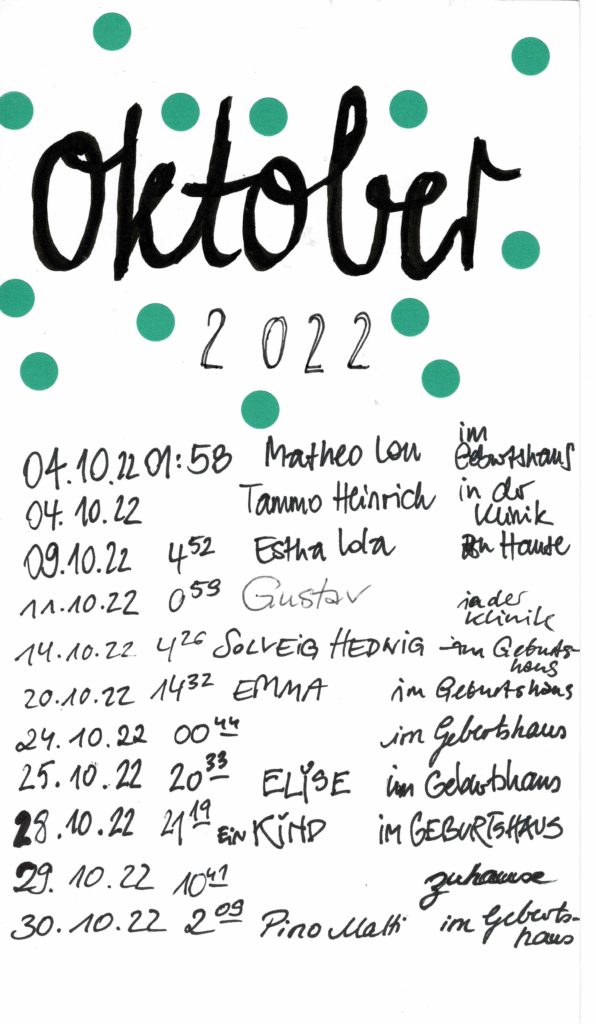 Oktober
2022
04.10.22 01:58 Matheo Lou im Geburtshaus
04.10.22 Tammo Heinrich in der Klinik
09.10.22 4 52 Estha Lola zu Hause
11.10.22 0 59 Gustav in der Klinik
14.10.22 4 26 SOLVEIG HEDWIG im Geburts-
haus
20.10.22 14 32 EMMA im Geburtshaus
24.10.22 00 44 im Geburtshaus
25.10.22 20 33 ELISE im Geburtshaus
28.10.22 21 19 EIN KIND IM GEBURTSHAUS
29.10.22 10 41 zuhause
30.10.22 2 09 Pino Matti im Geburts-
haus